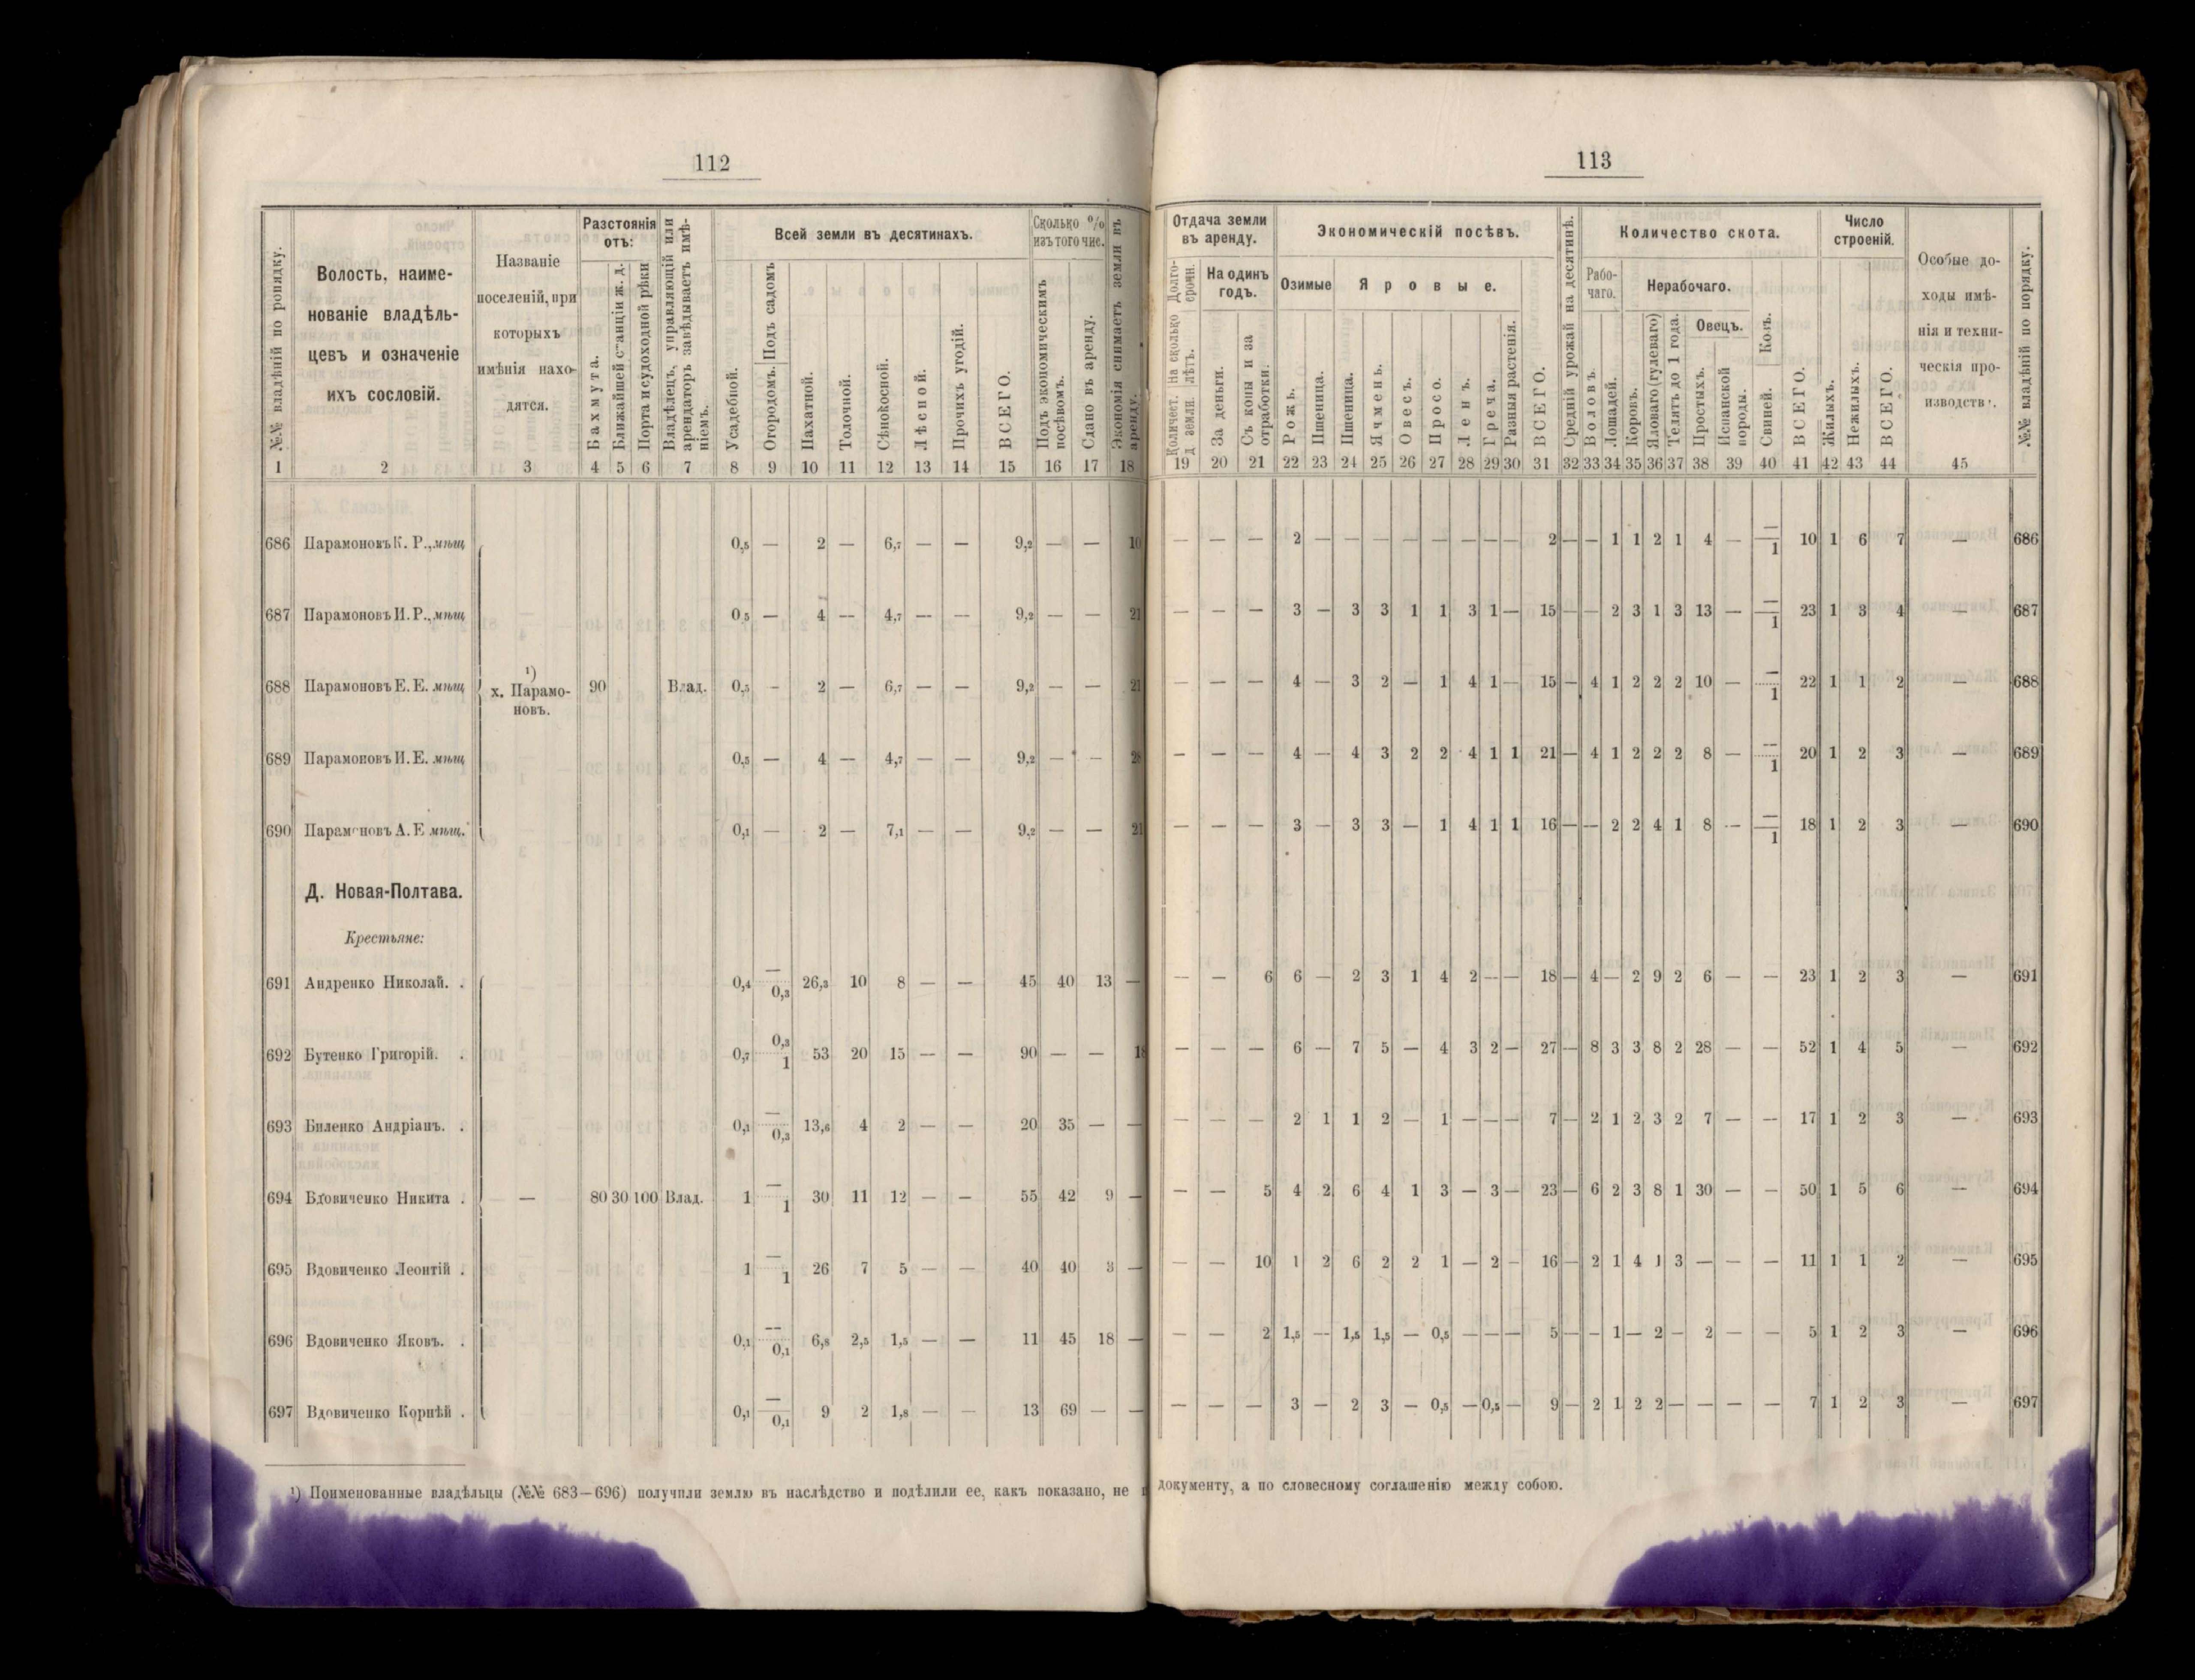 112
№№ владѣній по порядку.
Волость, наиме-
нованіе владѣль-
цевъ и означеніе
ихъ сословій.
Названіе
поселеній, при
которыхъ
имѣнія нахо-
дятся.
Разстоянія
отъ:
Бахмута.
Ближайшей станціи ж. д.
Порта и судоходной рѣки
Владѣлецъ, управляющій или
арендаторъ завѣдываетъ имѣ-
ніемъ.
Всей земли въ десятинахъ.
Усадебной.
Огородомъ. Подъ садомъ
Пахатной.
Толочной.
Сѣнокосной.
Лѣсной.
Прочихъ угодій.
ВСЕГО.
Сколько %
изъ того чис.
Подъ экономическимъ
посѣвомъ.
Сдано въ аренду.
Экономія снимаетъ земли въ
аренду.
1 2 3 4 5 6 7 8 9 10 11 12 13 14 15 16 17 18
686 Парамоновъ К. Р., мѣщ 0,5 — 2 — 6,7 — — 9,2 — — 10
687 Парамоновъ И. Р., мѣщ 0 5 — 4 — 4,7 — — 9,2 — — 21
688 Парамоновъ Е. Е. мѣщ ¹) х. Парамо- 90 Влад. 0,5 - 2 — 6,7 — — 9,2 — — 21
новъ.
689 Парамоновъ И. Е. мѣщ 0,5 — 4 — 4,7 — — 9,2 — - 28
690 Парамоновъ А. Е мѣщ. 0,1 — 2 — 7,1 — — 9,2 — — 21
Д. Новая-Полтава.
Крестьяне:
691 Андренко Николай. . 0,4 —/0,3 26,3 10 8 — — 45 40 13 —
692 Бутенко Григорій. . 0,7 0,3/1 53 20 15 — — 90 — — 18
693 Биленко Андріанъ. . 0,1 —/0,3 13,6 4 2 — — 20 35 — —
694 Вдовиченко Никита . — 80 30 100 Влад. 1 —/1 30 11 12 — — 55 42 9 —
695 Вдовиченко Леонтій . 1 —/1 26 7 5 — — 40 40 3 —
696 Вдовиченко Яковъ. . 0,1 —/0,1 6,8 2,5 1,5 — — 11 45 18 —
697 Вдовиченко Корнѣй . 0,1 —/0,1 9 2 1,8 — — 13 69 — —
¹) Поименованные владѣльцы (№№ 683—696) получили землю въ наслѣдство и подѣлили ее, какъ показано, не
113
Отдача земли
въ аренду.
Количест. На сколько Долго-
земли. лѣтъ. срочн.
На одинъ
годъ.
За деньги.
Съ копы и за
отработки.
Экономическій посѣвъ.
Озимые
Яровые.
Рожь.
Пшеница.
Пшеница.
Ячмень.
Овесъ.
Просо.
Ленъ.
Греча.
Разныя растенія.
ВСЕГО.
Средній урожай на десятинѣ.
Количество скота.
Рабо-
чаго.
Нерабочаго.
Воловъ.
Лошадей.
Коровъ.
Яловаго (гулеваго)
Телятъ до 1 года.
Овецъ.
Простыхъ.
Испанской
породы.
Свиней. Козъ.
ВСЕГО.
Число
строеній.
Жилыхъ.
Нежилыхъ.
ВСЕГО.
Особые до-
ходы имѣ-
нія и техни-
ческія про-
изводств
№№ владѣній по порядку.
19 20 21 22 23 24 25 26 27 28 29 30 31 32 33 34 35 36 37 38 39 40 41 42 43 44 45
— — — 2 — — — — — — — — 2 — — 1 1 2 1 4 — —/1 10 1 6 7 — 686
— — — 3 — 3 3 1 1 3 1 — 15 — — 2 3 1 3 13 — —/1 23 1 3 4 — 687
— — — 4 — 3 2 — 1 4 1 — 15 — 4 1 2 2 2 10 — —/1 22 1 1 2 — 688
— — — 4 — 4 3 2 2 4 1 1 21 — 4 1 2 2 2 8 — —/1 20 1 2 3 — 689
— — — 3 — 3 3 — 1 4 1 1 16 — — 2 2 4 1 8 — —/1 18 1 2 3 — 690
— — 6 6 — 2 3 1 4 2 — — 18 — 4 — 2 9 2 6 — — 23 1 2 3 — 691
— — — 6 — 7 5 — 4 3 2 — 27 — 8 3 3 8 2 28 — — 52 1 4 5 — 692
— — — 2 1 1 2 — 1 — — — 7 — 2 1 2 3 2 7 — — 17 1 2 3 — 693
— — 5 4 2 6 4 1 3 — 3 — 23 — 6 2 3 8 1 30 — — 50 1 5 6 — 694
— — 10 1 2 6 2 2 1 — 2 — 16 — 2 1 4 1 3 — — — 11 1 1 2 — 695
— — 2 1,5 — 1,5 1,5 — 0,5 — — — 5 — — 1 — 2 — 2 — — 5 1 2 3 — 696
— — — 3 — 2 3 — 0,5 — 0,5 — 9 — 2 1 2 2 — — — — 7 1 2 3 — 697
документу, а по словесному соглашенію между собою.